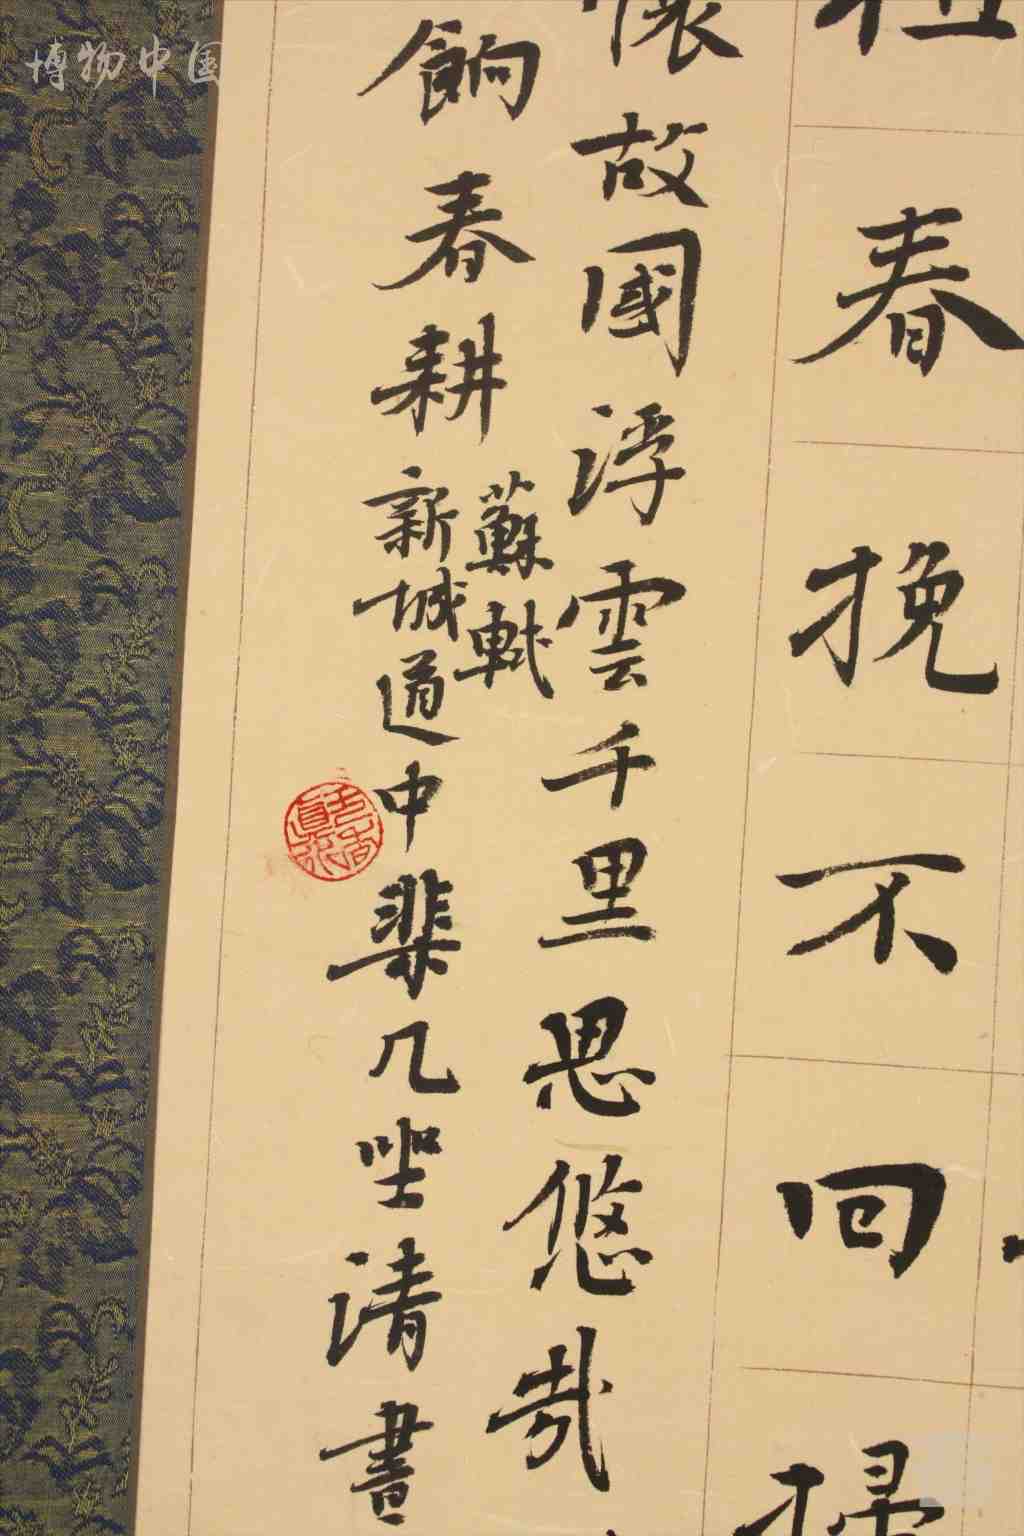 博物中国
春挽不回掃
懷故國浮雲千里思悠哉
餉春耕
蘇軾
新城道中棐几坐清書